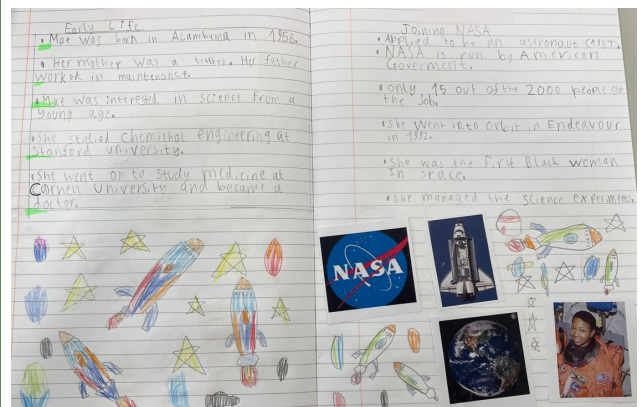 Early Life
• Mae was born in Alambama in 1956.
• Her mother was a Her father
worked in maintenance.
• Mae was interested in science from a
young age.
• She studied engineering at
Stanford university.
• She went on to study medicine at
Cornell University and became a
doctor.
Joining NASA
• Applied to be an astronaut (1987).
• NASA is run by American
Goverment.
• only 15 out of the 2000 people got
the Job.
• she went into orbit in Endeavour
in 1992.
• She was the First Black woman
In space.
• she managed the science
NASA